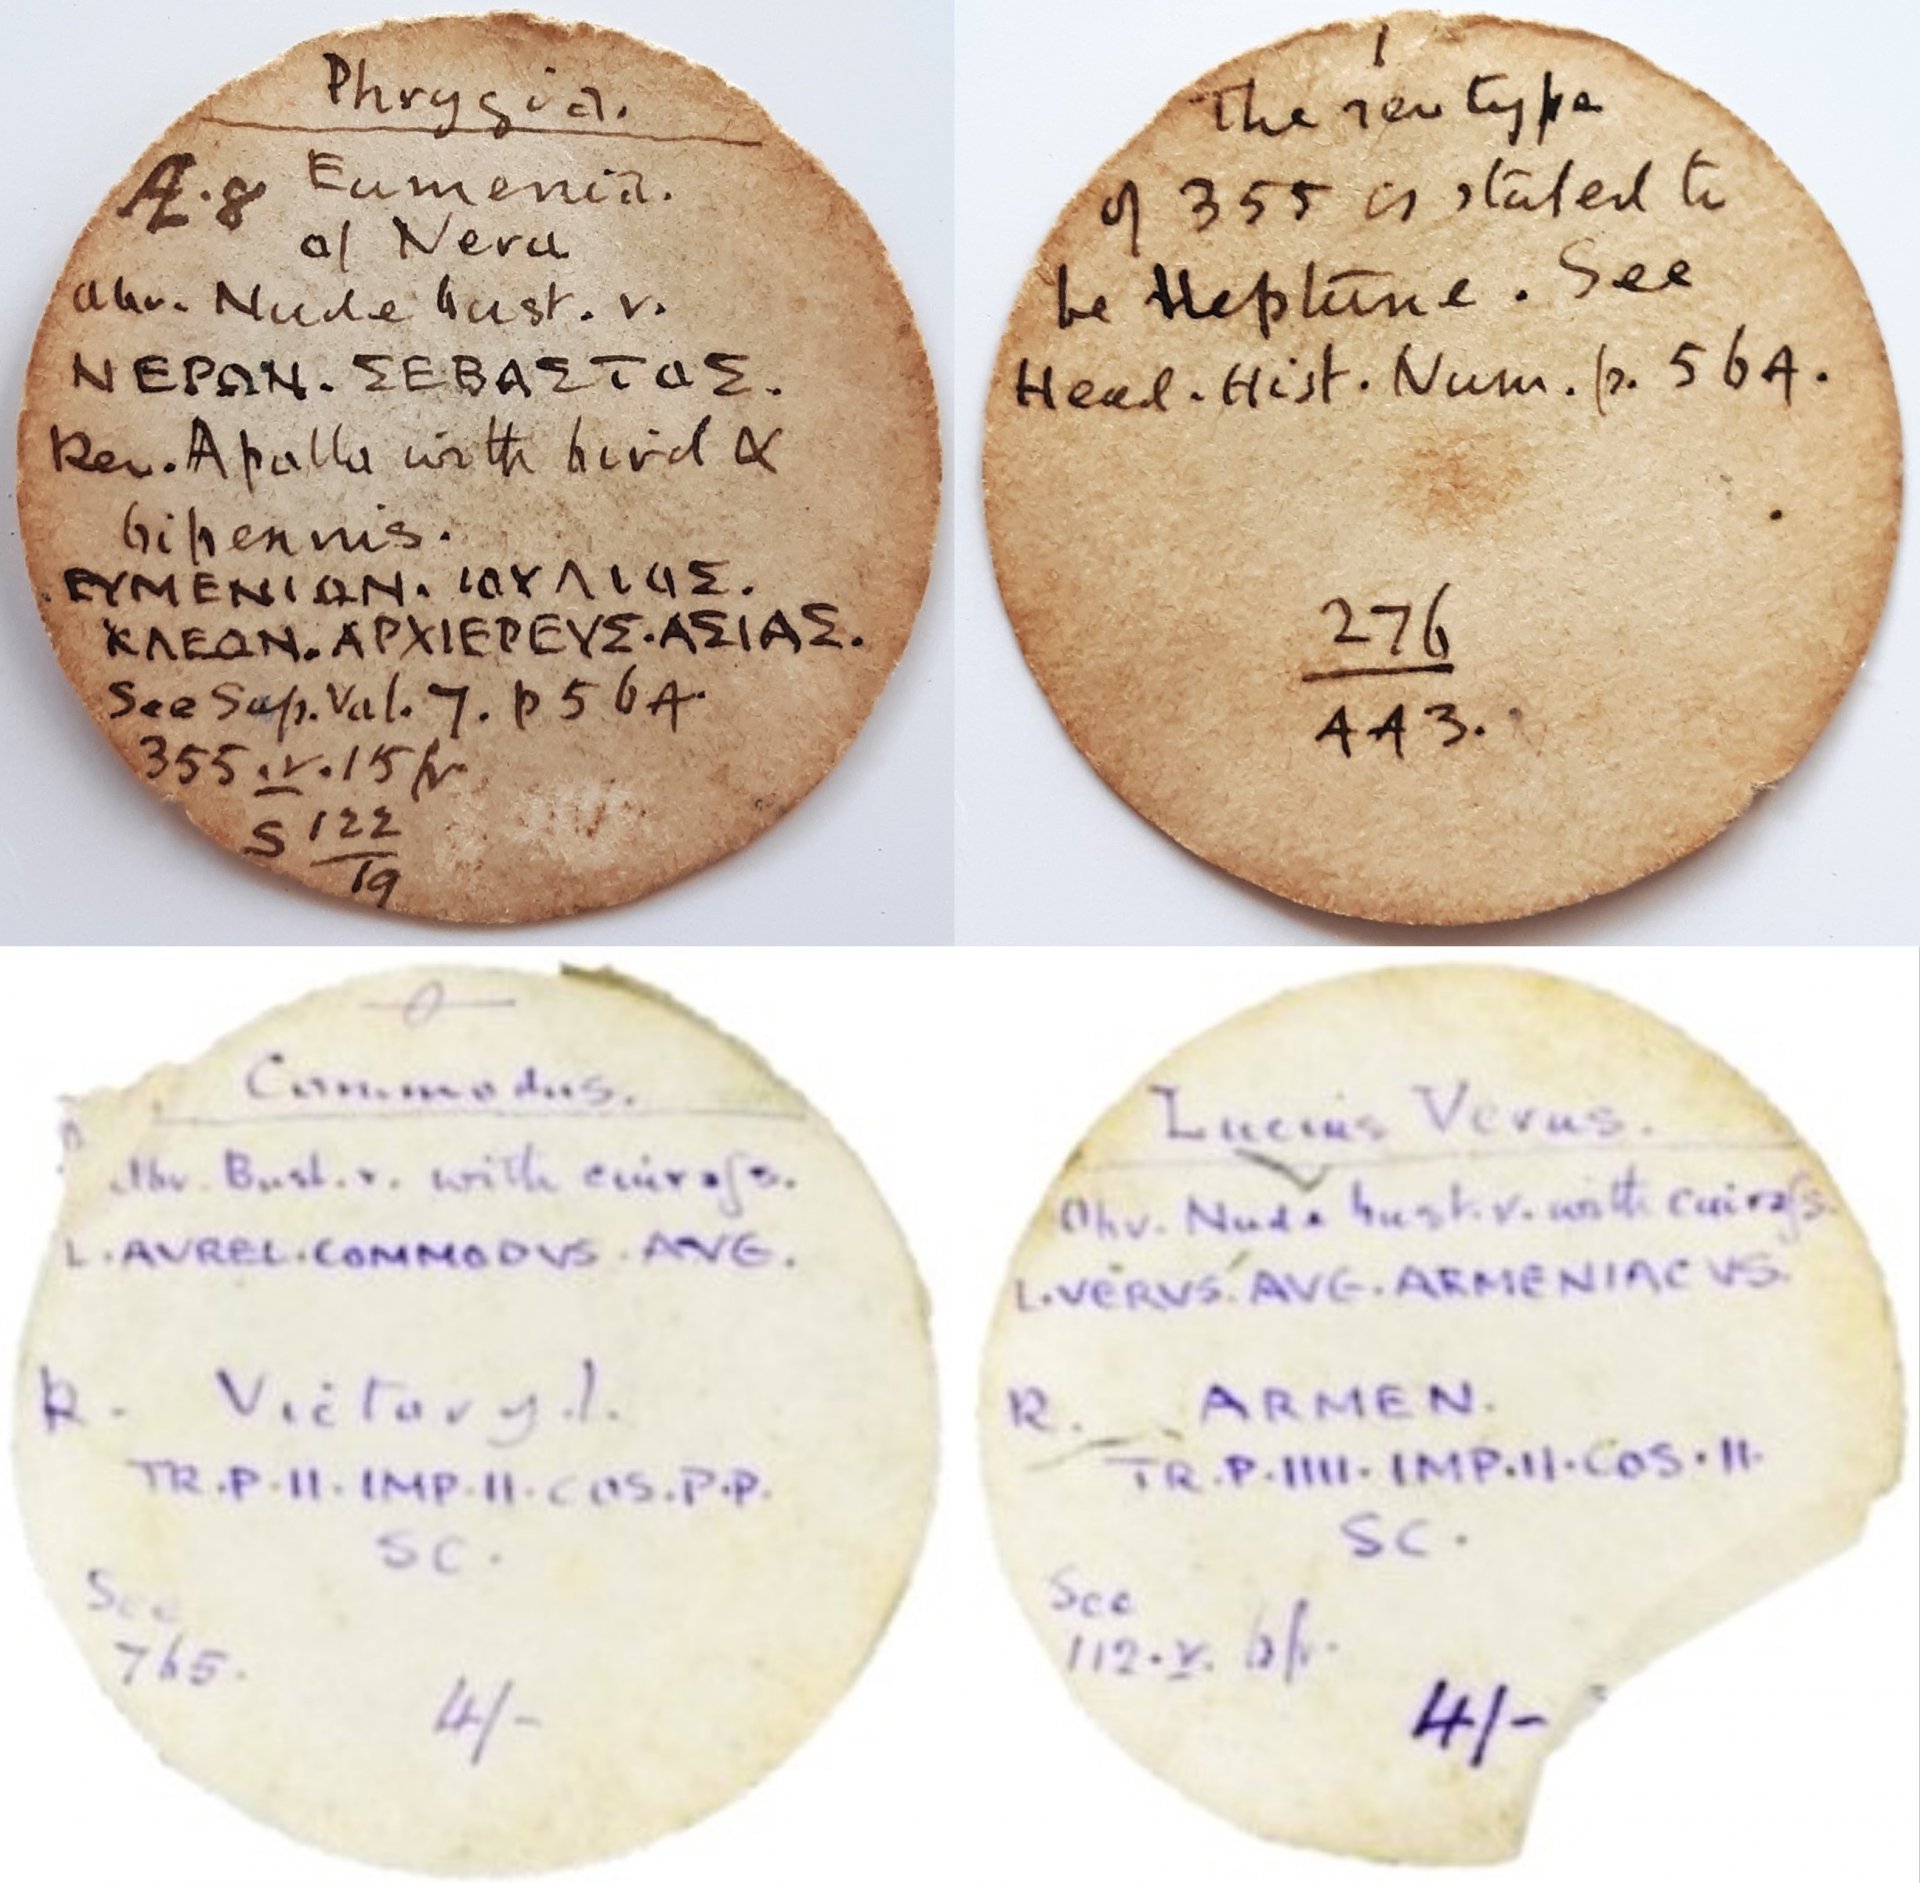 Phrygia.
Æ.8 Eumenia.
of Nero
Obv. Nude bust. r.
ΝΕΡΩΝ. ΣΕΒΑΣΤΟΣ.
Rev. Apollo with bird &
bipennis.
ΕΥΜΕΝΙΩΝ. ΙΟΥΛΙΟΣ.
ΚΛΕΩΝ. ΑΡΧΙΕΡΕΥΣ. ΑΣΙΑΣ.
See Sup. Vol. 7. p 564.
355. v. 15 fr
S 122
19
1
The rev type
of 355 is stated to
be Neptune. See
Head. Hist. Num. p. 564.
276
443.
Commodus.
Obv. Bust. r. with cuirass.
L. AVREL. COMMODVS. AVG.
R. Victory. l.
TR. P. II. IMP. II. COS. P. P.
SC.
See
765.
4/-
Lucius Verus.
Obv. Nude bust. r. with cuirass.
L. VERVS. AVG. ARMENIACVS.
R. ARMEN.
TR. P. IIII. IMP. II. COS. II.
SC.
See
112. v. 6 fr.
4/-